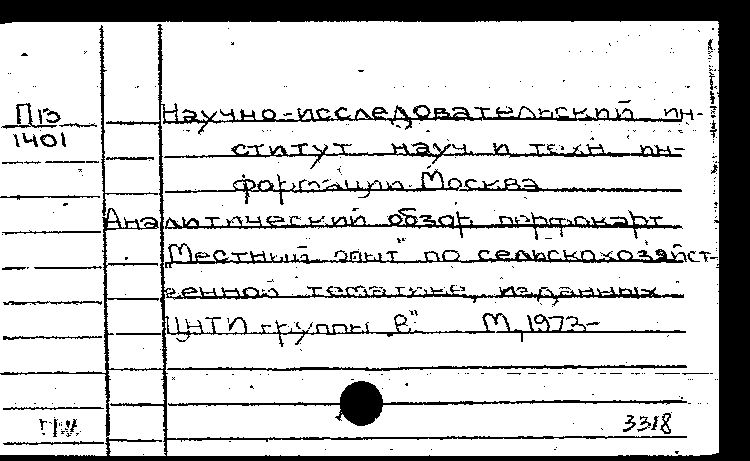 П13
1401
Научно-исследовательский ин-
ститут науч. и техн. ин-
формации. Москва
Аналитический обзор перфокарт
"Местный опыт" по сельскохозяйст-
венной тематике, изданных
ЦНТИ группы В." М, 1973-
3318